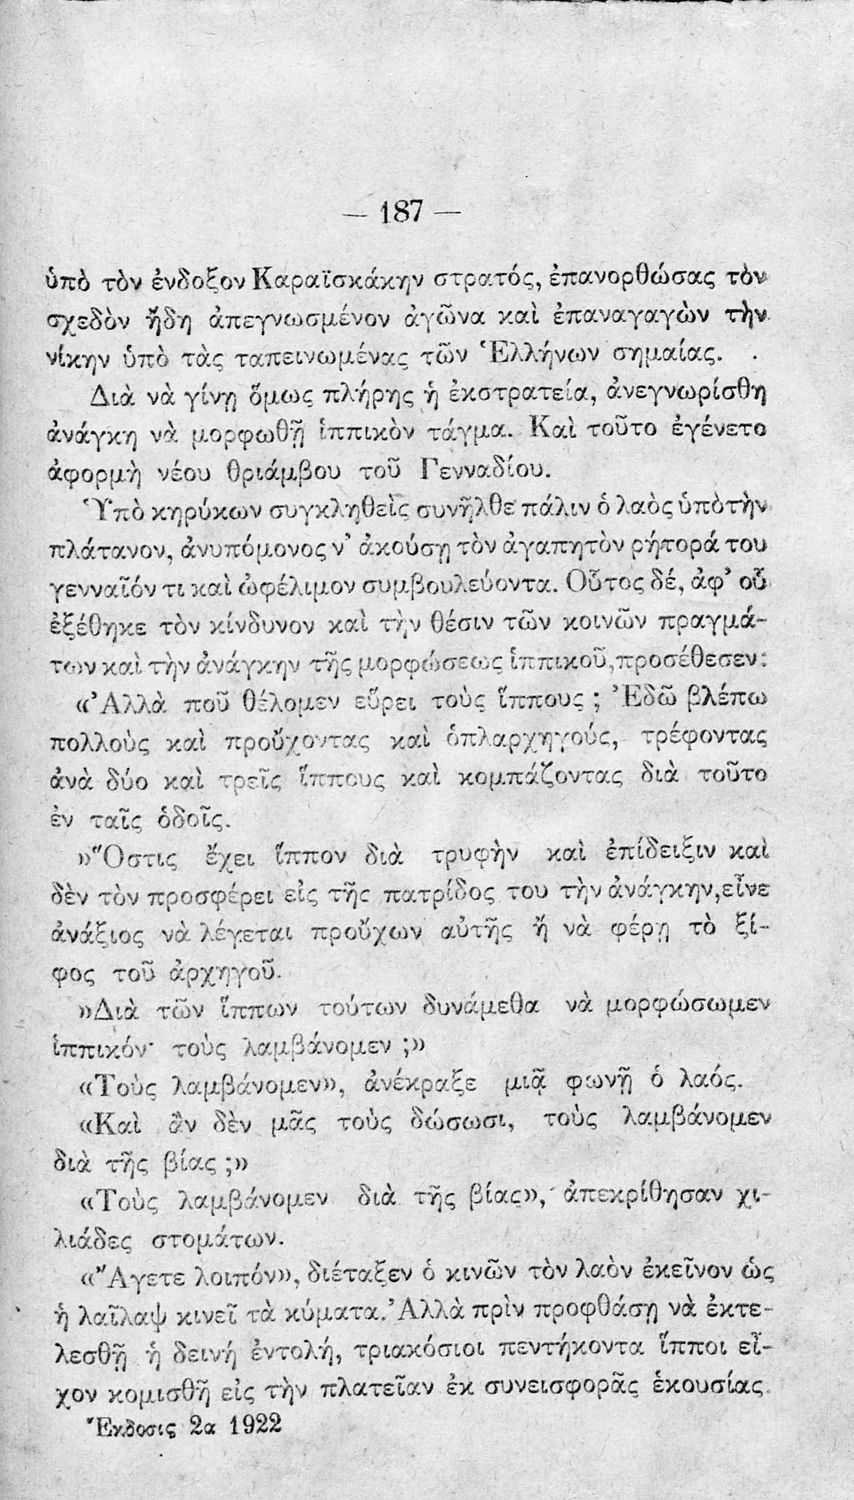 — 187 —
ὑπὸ τὸν ἐνδοξον Καραϊσκάκην στρατός, ἐπανορθώσας τὸν
σχεδὸν ἤδη ἀπεγνωσμένον ἀγῶνα καὶ ἐπαναγαγὼν τὴν
νίκην ὑπὸ τὰς ταπεινωμένας τῶν Ἑλλήνων σημαίας.
Διὰ νὰ γίνῃ ὅμως πλήρης ἡ ἐκστρατεία, ἀνεγνωρίσθη
ἀνάγκη νὰ μορφωθῇ ἱππικὸν τάγμα. Καὶ τοῦτο ἐγένετο
ἀφορμὴ νέου θριάμβου τοῦ Γενναδίου.
Ὑπὸ κηρύκων συγκληθεὶς συνῆλθε πάλιν ὁ λαὸς ὑπὸ τὴν
πλάτανον, ἀνυπόμονος ν' ἀκούσῃ τὸν ἀγαπητὸν ρήτορά του
γενναῖόν τι καὶ ὠφέλιμον συμβουλεύοντα. Οὗτος δέ, ἀφ' οὗ
ἐξέθηκε τὸν κίνδυνον καὶ τὴν θέσιν τῶν κοινῶν πραγμά-
των καὶ τὴν ἀνάγκην τῆς μορφώσεως ἱππικοῦ, προσέθεσεν:
«Ἀλλὰ ποῦ θέλομεν εὕρει τοὺς ἵππους ; Ἐδῶ βλέπω
πολλοὺς καὶ προὔχοντας καὶ ὁπλαρχηγούς, τρέφοντας
ἀνὰ δύο καὶ τρεῖς ἵππους καὶ κομπάζοντας διὰ τοῦτο
ἐν ταῖς ὁδοῖς.
»Ὅστις ἔχει ἵππον διὰ τρυφὴν καὶ ἐπίδειξιν καὶ
δὲν τὸν προσφέρει εἰς τῆς πατρίδος του τὴν ἀνάγκην, εἶνε
ἀνάξιος νὰ λέγεται προὔχων αὐτῆς ἢ νὰ φέρῃ τὸ ξί-
φος τοῦ ἀρχηγοῦ.
»Διὰ τῶν ἵππων τούτων δυνάμεθα νὰ μορφώσωμεν
ἱππικόν· τοὺς λαμβάνομεν ;»
«Τοὺς λαμβάνομεν», ἀνέκραξε μιᾷ φωνῇ ὁ λαός.
«Καὶ ἂν δὲν μᾶς τοὺς δώσωσι, τοὺς λαμβάνομεν
διὰ τῆς βίας ;»
«Τοὺς λαμβάνομεν διὰ τῆς βίας», ἀπεκρίθησαν χι-
λιάδες στομάτων.
«Ἄγετε λοιπόν», διέταξεν ὁ κινῶν τὸν λαὸν ἐκεῖνον ὡς
ἡ λαῖλαψ κινεῖ τὰ κύματα. Ἀλλὰ πρὶν προφθάσῃ νὰ ἐκτε-
λεσθῇ ἡ δεινή ἐντολή, τριακόσιοι πεντήκοντα ἵπποι εἶ-
χον κομισθῆ εἰς τὴν πλατεῖαν ἐκ συνεισφορᾶς ἑκουσίας.
Ἔκδοσις 2α 1922